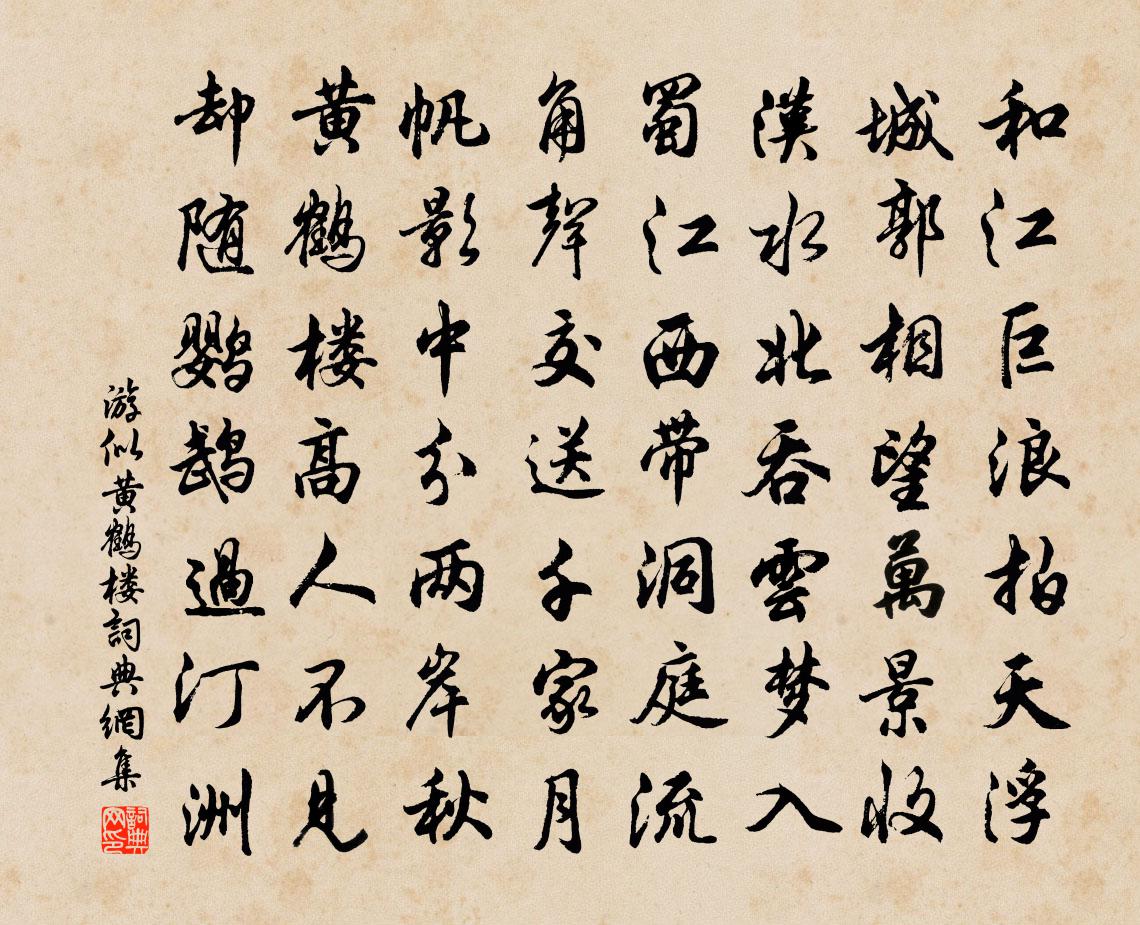 和江巨浪拍天浮
城郭相望萬景收
漢水北吞雲梦入
蜀江西带洞庭流
角聲交送千家月
帆影中分两岸秋
黄鹤楼高人不見
却随鹦鹉過汀洲
游似黄鹤楼詞典網集
詞典网印